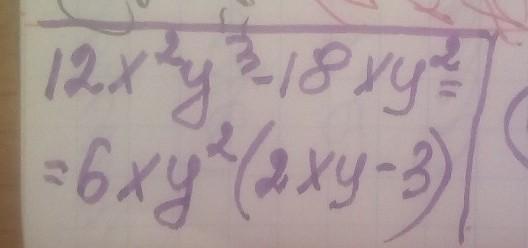 12x²y³-18xy²=
=6xy²(2xy-3)